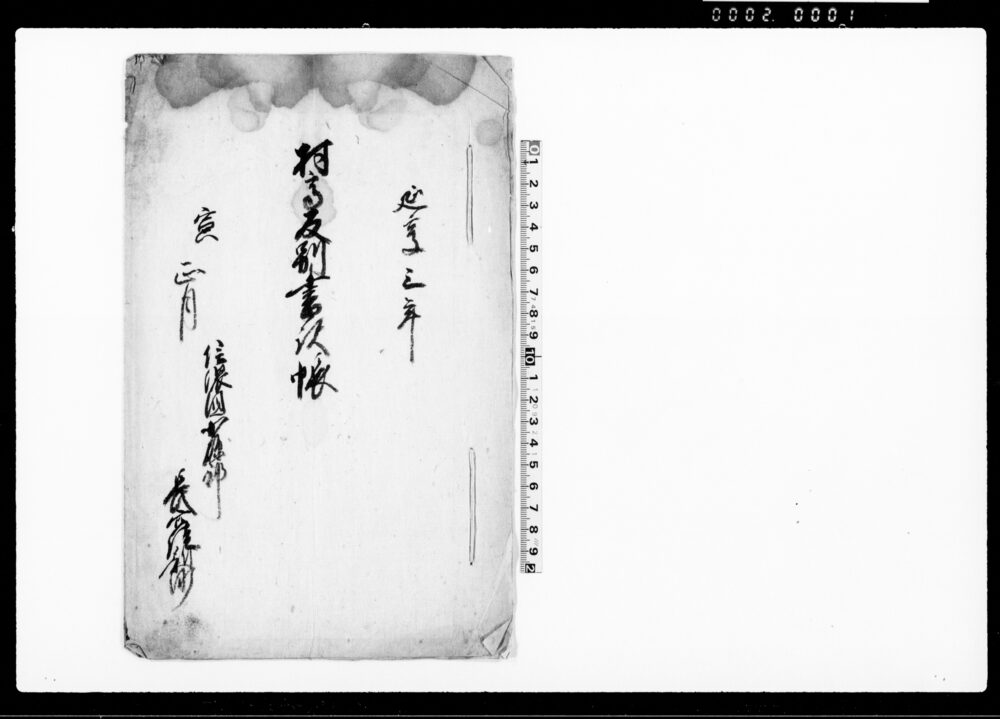 0002. 0001
延享三年
村高反別書訳帳
寅 正月
信濃国小県郡
長窪
0 1 2 3 4 5 6 7 8 9 10 1 2 3 4 5 6 7 8 9 2